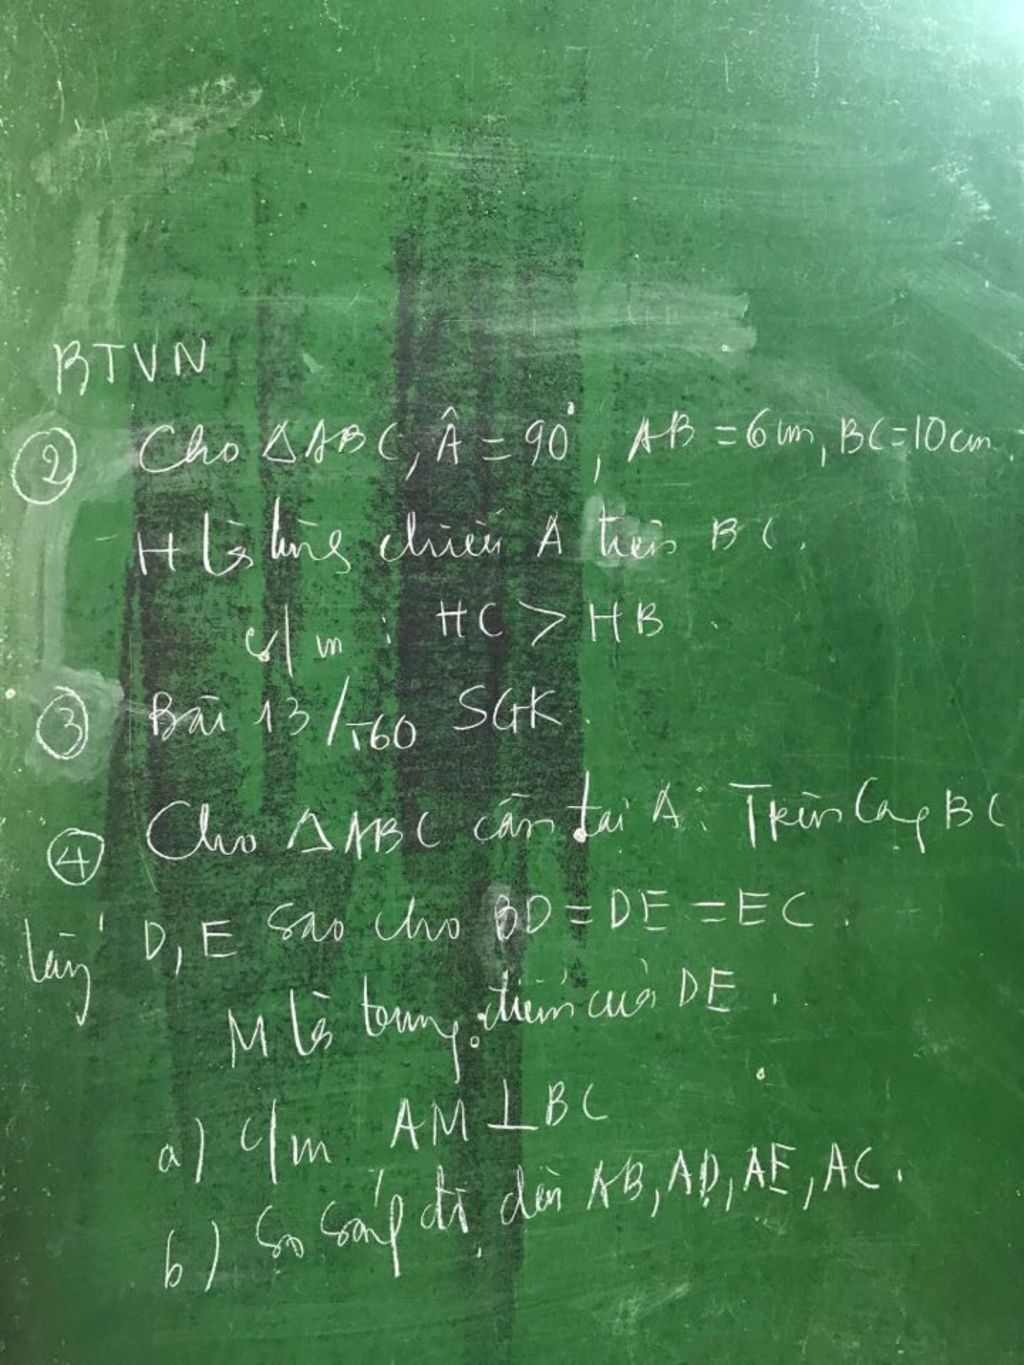 BTVN
② Cho △ABC, Â = 90°, AB = 6cm, BC = 10cm.
- H là hình chiếu A trên BC.
c/m : HC > HB
③ Bài 13/T60 SGK.
④ Cho △ABC cân tại A. Trên cạnh BC
lấy D, E sao cho BD = DE = EC.
M là trung điểm của DE.
a) c/m AM ⊥ BC
b) So độ dài AB, AD, AE, AC.